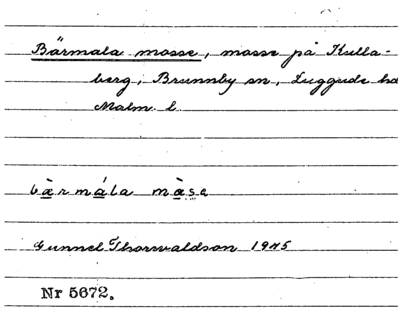 Bärmala mosse, mosse på Kulla-
berg, Brunnby sn, Luggude hd
Malm. l.
bàrmála màsa
Gunnel Thorvaldson 1945
Nr 5672.